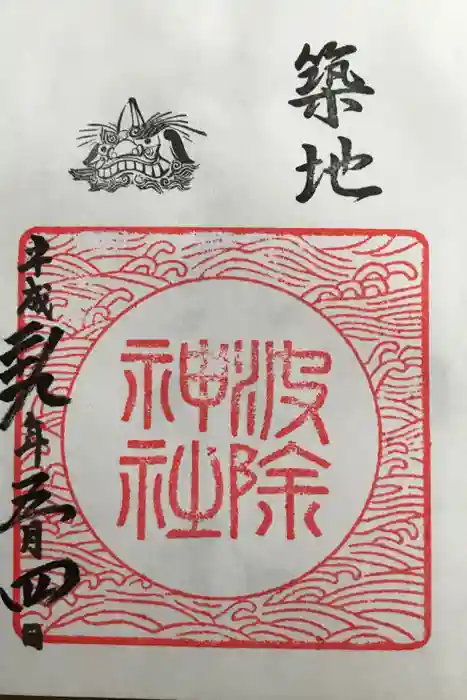 築地
波除
神社
平成二九年三月四日